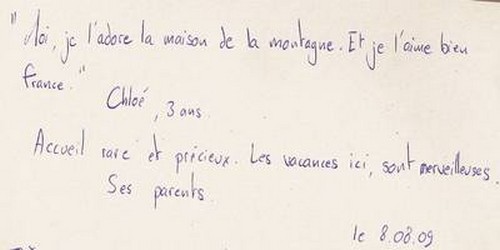 "Moi, je l'adore la maison de la montagne. Et je l'aime bien
france."
Chloé, 3 ans.
Accueil rare et précieux. Les vacances ici, sont merveilleuses.
Ses parents.
le 8.08.09